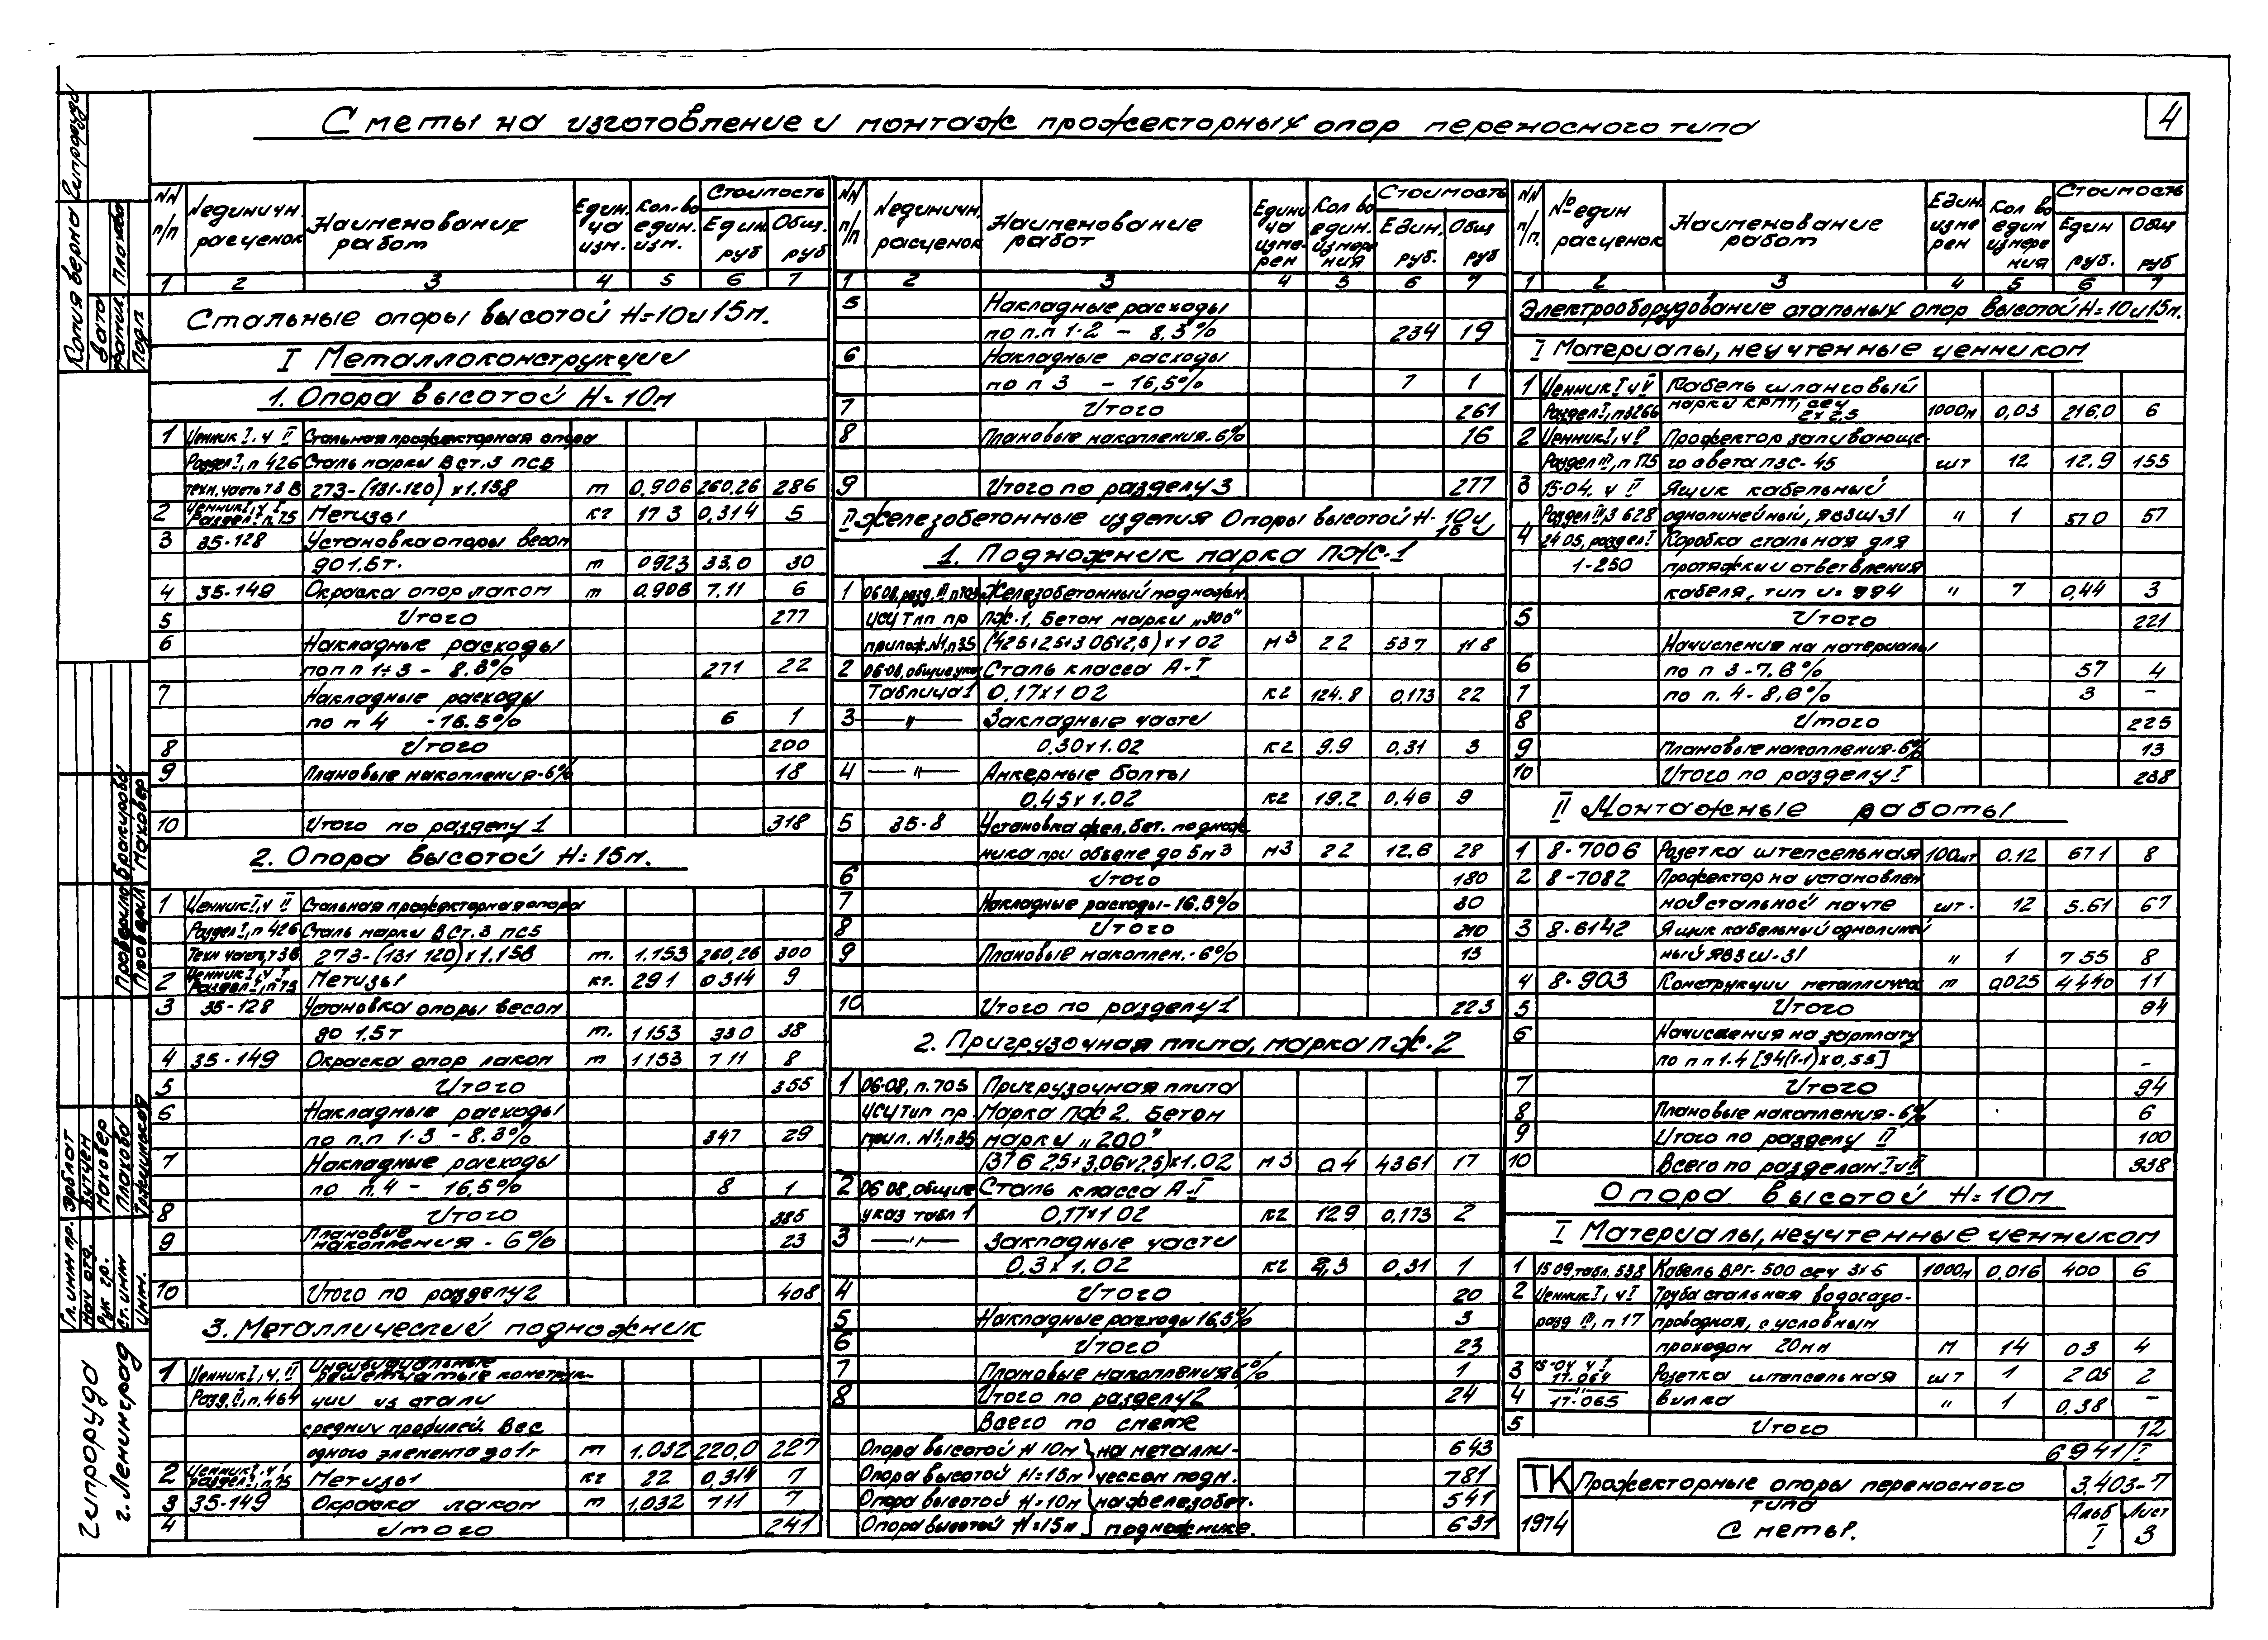 Сметы на изготовление и монтаж прожекторных опор переносного типа
4
NN п/п | N единичн. расценок | Наименования работ | Един. ца изм. | Кол-во един. изм. | Стоимость | Един. руб | Общ. руб
1 2 3 4 5 6 7
Стальные опоры высотой Н=10 и 15м.
I Металлоконструкции
1. Опора высотой Н=10м
1 Ценник I, ч II Стальная прожекторная опора
Раздел I, п 426 Сталь марки В ст.3 пс5
техн. часть т 3 В 273-(131-120)х1.158 т 0,906 260.26 286
2 Ценник I, ч I Раздел I, п.75 Метизы кг 17 3 0,314 5
3 35-128 Установка опоры весом
до 1.5т. т 0923 33,0 30
4 35-149 Окраска опор лаком т 0.906 7.11 6
5 Итого 277
6 Накладные расходы
по п п 1÷3 - 8.3% 271 22
7 Накладные расходы
по п 4 -16.5% 6 1
8 Итого 200
9 Плановые накопления-6% 18
10 Итого по разделу 1 318
2. Опора высотой Н=15м.
1 Ценник I, ч II Стальная прожекторная опора
Раздел I, п 426 Сталь марки В Ст.3 пс5
Техн часть, т 3 В 273-(131 120)х1.158 т. 1.153 260,26 300
2 Ценник I, ч I Раздел I, п 75 Метизы кг. 29 1 0314 9
3 35-128 Установка опоры весом
до 1.5т т. 1153 330 38
4 35-149 Окраска опор лаком т 1153 7 11 8
5 Итого 355
6 Накладные расходы
по п.п 1-3 - 8.3% 347 29
7 Накладные расходы
по п.4 - 16,5% 8 1
8 Итого 385
9 Плановые накопления - 6% 23
10 Итого по разделу 2 408
3. Металлический подножник
1 Ценник I, ч. II Индивидуальные решетчатые конструк-
Разд. II, п. 464 ции из стали
средних профилей. Вес
одного элемента до 1т т 1.032 220,0 227
2 Ценник I, ч I раздел I, п.75 Метизы кг 22 0,314 7
3 35-149 Окраска лаком т 1,032 711 7
4 Итого 241
NN п/п | N единичн. расценок | Наименование работ | Едини ца измерен | Кол во един. измерения | Стоимость | Един. руб. | Общ руб
1 2 3 4 5 6 7
5 Накладные расходы
по п.п 1-2 - 8.3% 234 19
6 Накладные расходы
по п 3 - 16,5% 7 1
7 Итого 261
8 Плановые накопления-6% 16
9 Итого по разделу 3 277
II Железобетонные изделия Опоры высотой Н- 10 и 15 м
1. Подножник марка ПЖ-1
1 06 08, разд. III п 703 Железобетонный подножн.
ЦСУ Тип пр ПЖ-1, Бетон марки „300"
прилож. №1, п 35 (425+2,5+3 06х2,5)х1 02 м3 2 2 53 7 118
2 06-08, общие указ Сталь класса А-I
Таблица 1 0,17х1 02 кг 124.8 0,173 22
3 —"— Закладные части
0,30х1.02 кг 9.9 0,31 3
4 —"— Анкерные болты
0,45х1.02 кг 19.2 0,46 9
5 35-8 Установка жел. бет. поднож
ника при объеме до 5м3 м3 2 2 12,6 28
6 Итого 180
7 Накладные расходы-16.5% 30
8 Итого 210
9 Плановые накоплен.-6% 13
10 Итого по разделу 1 223
2. Пригрузочная плита, марка ПЖ-2
1 06-08, п. 703 Пригрузочная плита
ЦСУ Тип пр. Марка ПЖ 2. Бетон
прил. №1, п 35 марки „200"
(376 2,5+3,06х2,5)х1.02 м3 0,4 4361 17
2 06 08, общие Сталь класса А-I
указ табл 1 0,17х1 02 кг 12.9 0,173 2
3 —"— Закладные части
0,3х1.02 кг 2,3 0,31 1
4 Итого 20
5 Накладные расходы 16,5% 3
6 Итого 23
7 Плановые накопления 6% 1
8 Итого по разделу 2 24
Всего по смете
Опора высотой Н 10м } на металли- 643
Опора высотой Н=15м } ческом подн. 781
Опора высотой Н=10м } на железобет. 541
Опора высотой Н=15м } подножнике. 631
NN п/п. | № един расценок | Наименование работ | Един. измерен | Кол во един измерения | Стоимость | Един руб. | Общ руб
1 2 3 4 5 6 7
Электрооборудование стальных опор высотой Н=10 и 15м.
I Материалы, неучтенные ценником
1 Ценник I ч V Кабель шланговый
Раздел I, п 3266 марки КРПТ, сеч 2х2,5 1000м 0,03 216,0 6
2 Ценник I, ч V Прожектор заливающе-
Раздел III, п 175 го света пзс-45 шт 12 12.9 155
3 15-04. ч II Ящик кабельный
Раздел III, 3 628 однолинейный, ЯВЗШ-31 " 1 57 0 57
4 24 05, раздел I Коробка стальная для
1-250 протяжки и ответвления
кабеля, тип У-994 " 7 0,44 3
5 Итого 221
Начисления на материалы
6 по п 3-7.6% 57 4
7 по п. 4-8,6% 3 –
8 Итого 225
9 Плановые накопления-6% 13
10 Итого по разделу I 238
II Монтажные работы
1 8-7006 Розетка штепсельная 100шт 0.12 67 1 8
2 8-7082 Прожектор на установлен
ной стальной мачте шт. 12 5.61 67
3 8-6142 Ящик кабельный однолиней
ный ЯВЗШ-31 " 1 7 55 8
4 8-903 Конструкции металлическ т 0,025 4440 11
5 Итого 94
6 Начисления на зарплату
по п п 1-4 [94(1-1)х0,53] –
7 Итого 94
8 Плановые накопления-6% 6
9 Итого по разделу II 100
10 Всего по разделам I и II 338
Опора высотой Н=10м
I Материалы, неучтенные ценником
1 15 09, табл. 538 Кабель ВРГ-500 сеч 3х6 1000м 0,016 400 6
2 Ценник I, ч I Труба стальная водогазо-
разд III, п 17 проводная, с условным
проходом 20мм М 14 0 3 4
3 15-04 ч I 17-064 Розетка штепсельная шт 1 2 05 2
4 —"— 17-065 Вилка " 1 0,38 –
5 Итого 12
6941/I
ТК Прожекторные опоры переносного типа 3.403-7
1974 Сметы. Альб I Лист 3
Копия верна Гипроруда
Дата
Фамил. Плохово
Подп
Проверила Бракирова
Проверил Маховер
Гл. инж пр. Эрблат
Нач отд. Вутчен
Рук гр. Маховер
Ст. инж Плахово
Инж.
Гипроруда
г. Ленинград